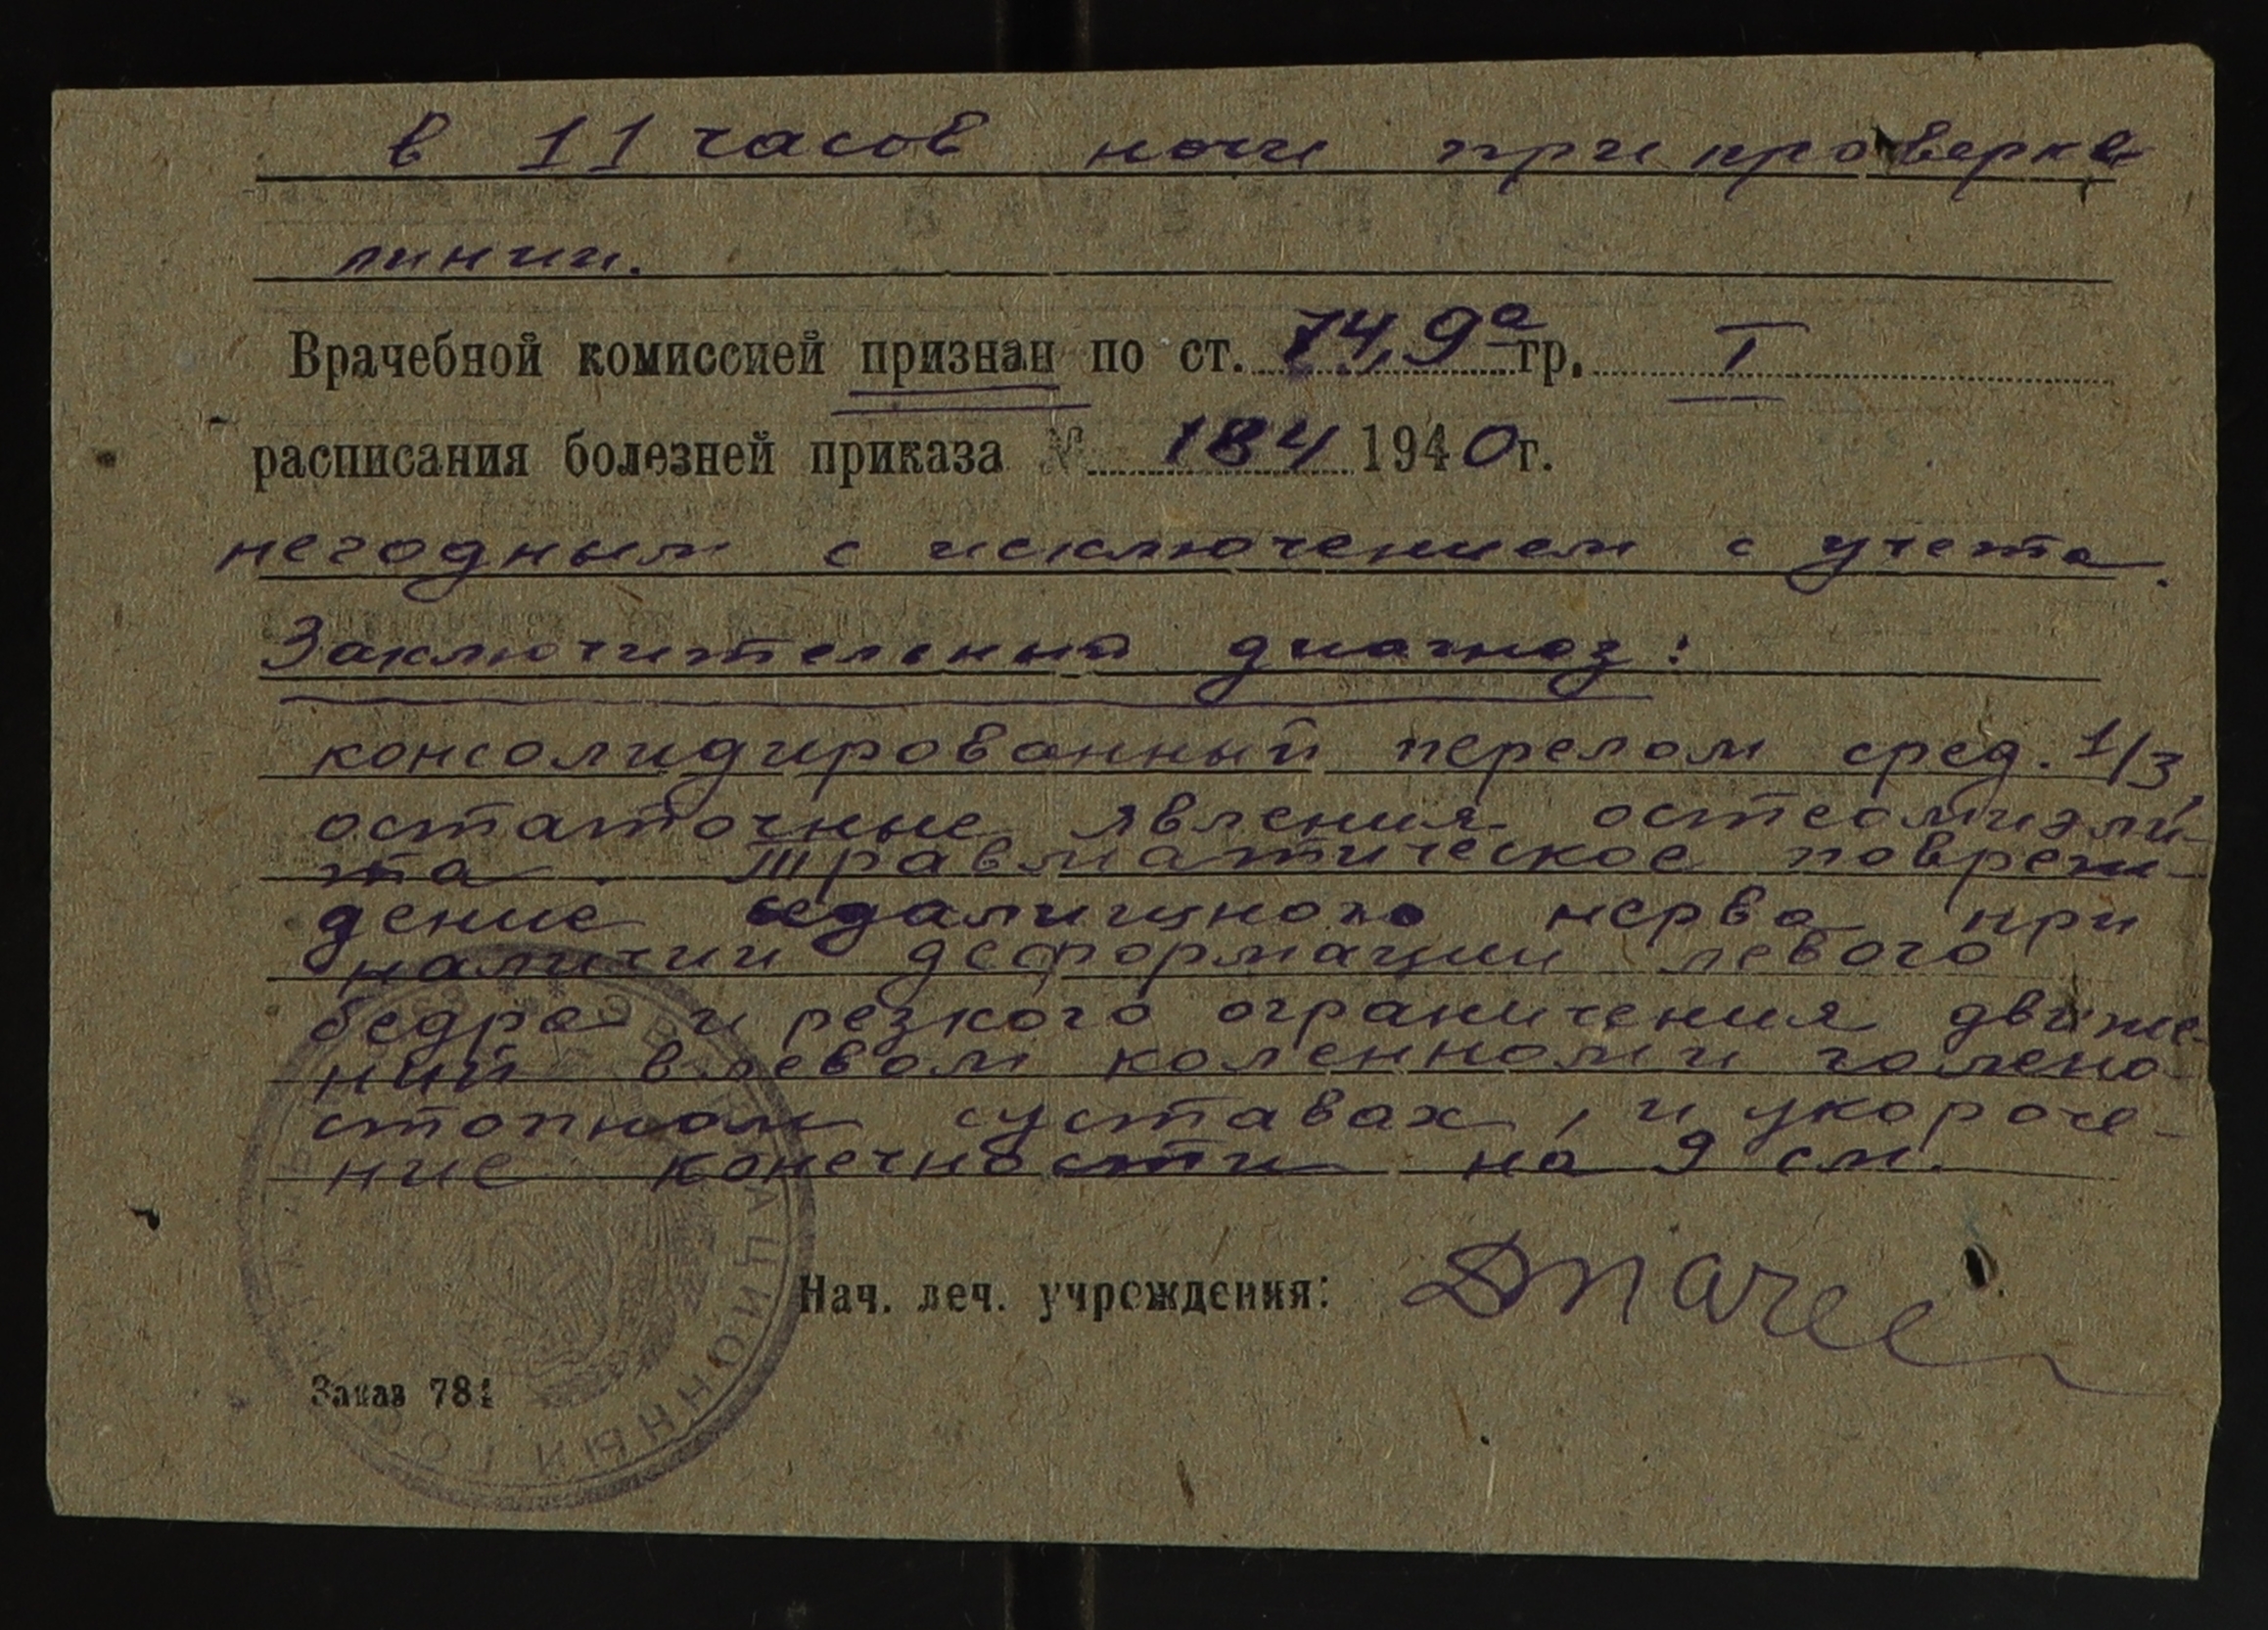 в 11 часов ночи при проверке
линии.
Врачебной комиссией признан по ст. 74, 9а гр. I
расписания болезней приказа № 184 1940 г.
негодным с исключением с учета.
Заключительный диагноз:
консолидированный перелом сред. 1/3,
остаточные явления остеомиэли-
та. Травматическое повреж-
дение седалищного нерва при
наличии деформации левого
бедра и резкого ограничения движе-
ний в левом коленном и голено
стопном суставах, и укороче-
ние конечности на 9 см.
Нач. леч. учреждения:
Заказ 781
ЭВАКУАЦИОННЫЙ ГОСПИТАЛЬ